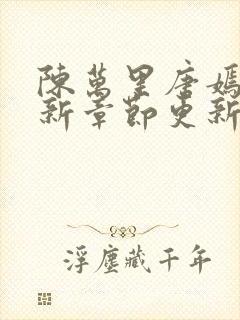 陳萬里唐嫣
新章節更新
浮塵藏千年